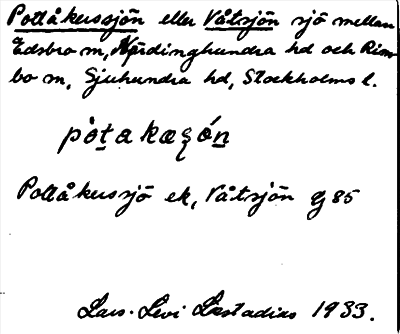 Pottåkerssjön eller Våtsjön sjö mellan
Edsbro sn, Närdinghundra hd och Rim-
bo sn, Sjuhundra hd, Stockholms l.
Pottåkerssjö ek, Våtsjön G 85
Lars-Levi Læstadius 1933.